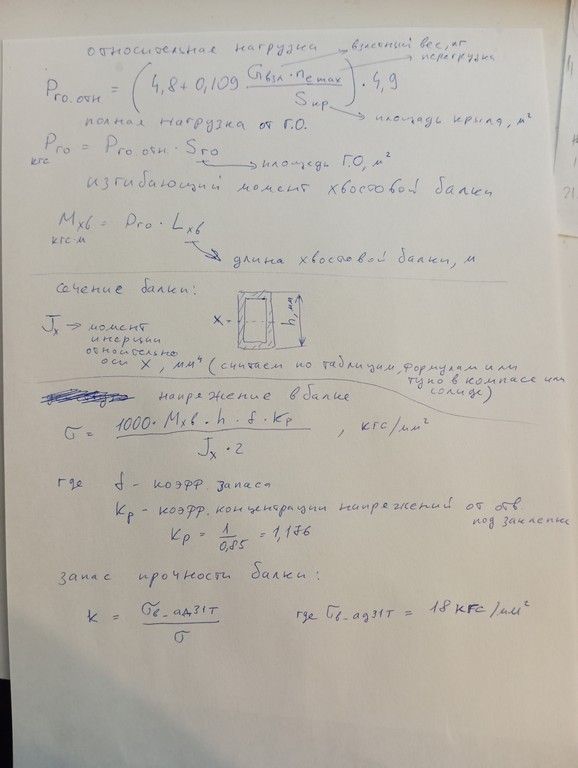 относительная нагрузка → взлетный вес, кг
→ перегрузка
Pго.отн = (4,8 + 0,109 Gвзл · nэmax / Sкр) · 4,9
→ площадь крыла, м²
полная нагрузка от Г.О.
Pго = Pго.отн · Sго
кгс → площадь Г.О., м²
изгибающий момент хвостовой балки
Mхв = Pго · Lхв
кгс·м
→ длина хвостовой балки, м
сечение балки:
X
h, мм
Jx → момент
инерции
относительно
оси X, мм⁴ (считаем по таблицам, формулам или
тупо в компасе или
солиде)
напряжение в балке
σ = 1000 · Mхв · h · f · Kр / Jx · 2 , кгс/мм²
где f - коэфф. запаса
Kр - коэфф. концентрации напряжений от отв.
под заклепки
Kр = 1/0,85 = 1,176
запас прочности балки:
k = σв_ад31т / σ где σв_ад31т = 18 кгс/мм²